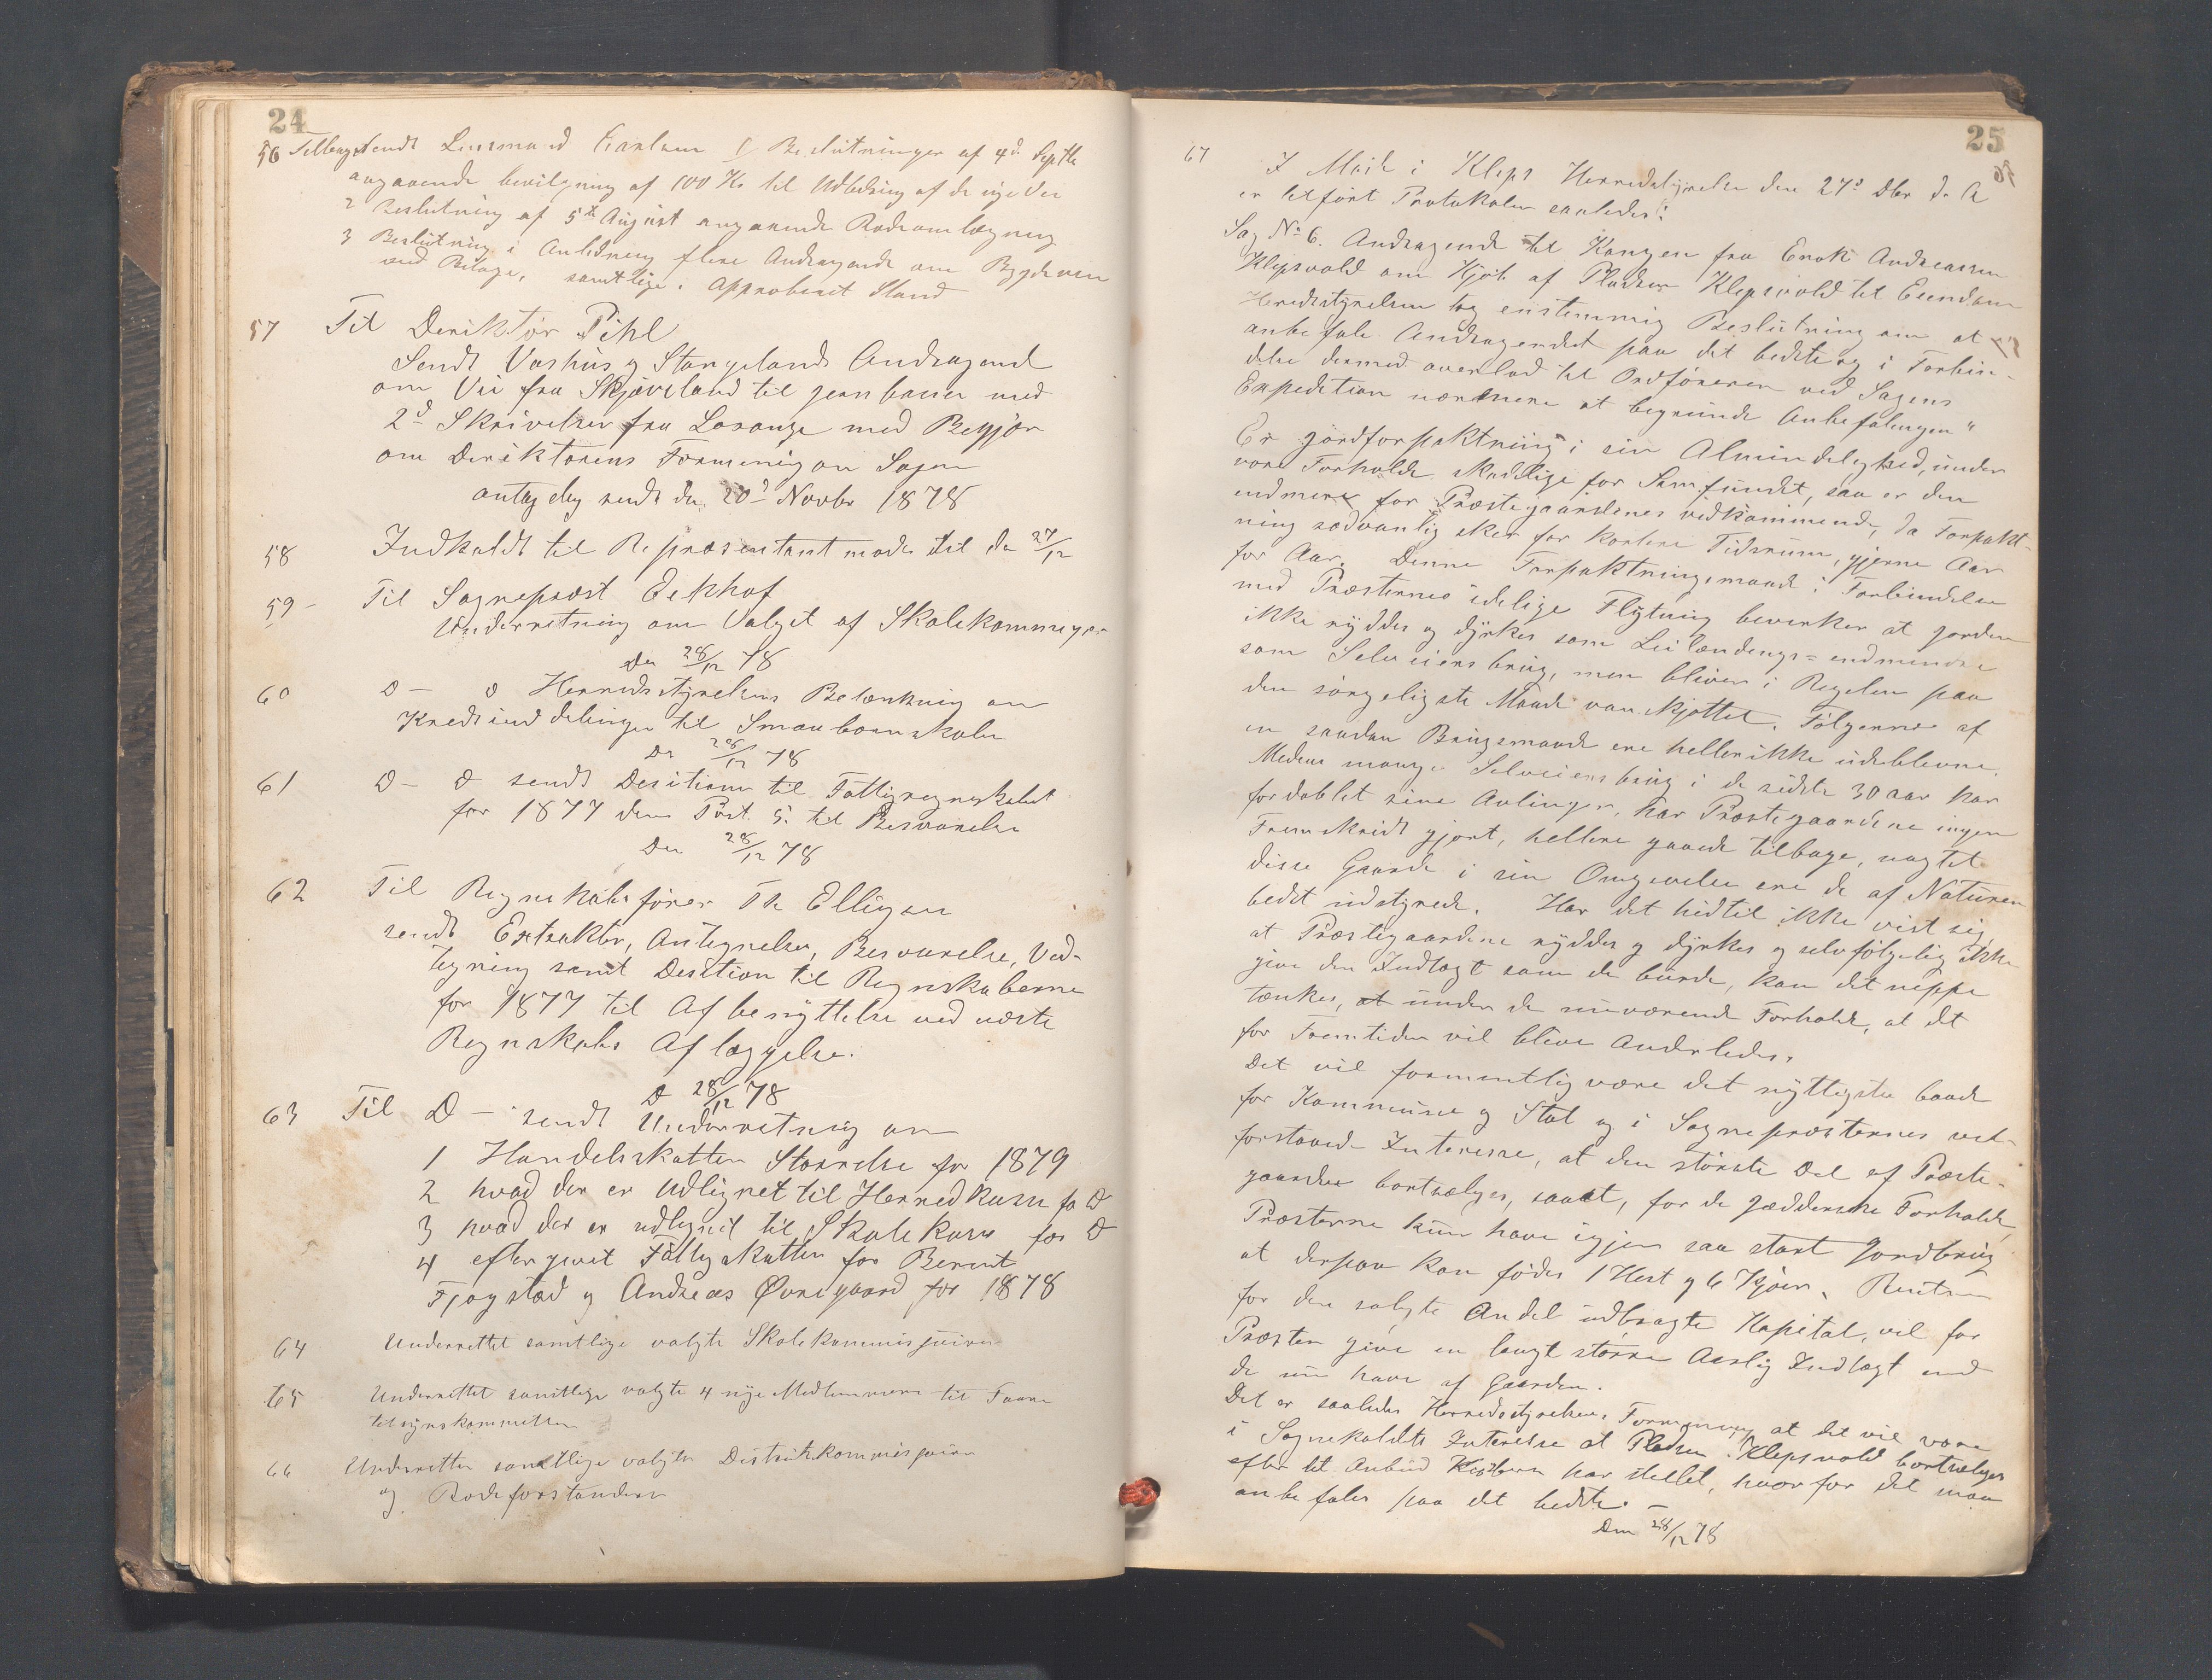 24
56 Tilbagesendt Lensmand 1 Beslutninger af 4d Septbr
angaaende bevilgning af 100 Kr til Udbedring af de nye Vei
2 Beslutning af 5te August angaaende Rodeomlægning
3 Beslutning i Anledning flere Andragende om Bygdeveien
med Bilage, samtlige i Approberet Stand
57 Til Deriktør Pihl
Sendt Vashus og Stangelands Andragende
om Vei fra Skjæveland til jernbanen med
2d Skrivelser fra Lasange med Begjær
om Deriktørens Formening om Sagen
antagelig sendt den 20d Novbr 1878
58 Indkaldt til Repræsentantmøde til den 27/12
59 - Til Sognepræst Eckhof
Underretning om Valget af Skolekommisjon
Den 28/12 78
60 D - D Herredsstyrelsens Betænkning om
Kredsinddelingen til Smaabørnskolen
Den 28/12 78
61 D - D sendt Desitioner til Fattigregnskabet
for 1877 dens Post 5 til Besvarelse
Den 28/12 78
62 Til Regnskabsfører Th Elligsen
sendt Extrakter, Antegnelser, Besvarelse, Ved-
tegning samt Desition til Regnskaberne
for 1877 til Afbenyttelse ved næste
Regnskabs Aflæggelse.
D 28/12 78
63 Til D - sendt Underretning om
1 Handelsskatten Størrelse for 1879
2 hvad der er Udlignet til Herredkassen for D
3 hvad der er udlignet til Skolekassen for D
4 eftergivet Fattigskatten for Berent
Fjogstad og Andreas Øvregaard for 1878
64 Underrettet samtlige valgte Skolekommisjoner
65 Underrettet samtlige valgte 4 nye Medlemmere til Faare
tilsynskommitten
66 Underrettet samtlige valgte Distriktskommisjonen
og Rodeforstandere
25
67 I Møde i Kleps Herredstyrelse den 27d Dbr d. A
er tilført Protokolen saaledes:
Sag No 6. Andragende til Kongen fra Enok Andreassen
Klepsvold om Kjøb af Pladsen Klepsvold til Eiendom
Heredsstyrelsen tog enstemmig Beslutning om at
anbefale Andragendet paa det bedste og i Forbin-
delse dermed overlod til Ordføreren ved Sagens
Expedition nærmere at begrunde Anbefalingen"
Er jordforpaktning i sin Almindelighed, under
vore Forholde skadelige for Samfundet, saa er den
endmere for Præstegaardenes vedkommende, da Forpakt-
ning sædvanlig sker for kortere Tidsrum, gjerne Aar
for Aar. Denne Forpaktningsmaade i Forbindelse
med Præsternes idelige Flytning bevirker at jorden
ikke ryddes og dyrkes som Leilændings= endmindre
som Selveiersbrug, men bliver i Regelen paa
den sørgeligste Maade vanskjøttet. Følgerne af
en saadan Brugsmaade ere heller ikke udeblevne.
Medens mange Selveiersbrug i de sidste 30 aar har
fordoblet sine Avlinger, har Præstegaardene ingen
Fremskridt gjort, hellere gaaet tilbage, uagtet
disse Gaarde i sin Omgivelse ere de af Naturen
bedst udstyrede. Har det hidtil ikke vist sig,
at Præstegaardene ryddes og dyrkes og selvfølgelig ikke
give den Indtægt som de burde, kan det neppe
tænkes, at under de nuværende Forholde, at det
for Fremtiden vil blive Anderledes.
Det vil formentlig være det nyttigste baade
for Kommune og Stat og i Sognepræsternes vel-
forstaaede Interesse, at den største Del af Præste-
gaarden bortsælges, saaat, for de Jædderske Forholde,
Præsterne kun have igjen saa stort Jordbrug
at derpaa kan fødes 1 Hest og 6 Kjøer. Renten
for den solgte Andel udbragte Kapital, vil for
Præsten give en langt større Aarlig Indtægt end
de nu have af Gaarden.
Det er saaledes Herredsstyrelsens Formening at det vil være
i Sognekaldets Interesse at Pladsen Klepsvold bortsælges
efter et Anbud Kjøberen har stillet, hvorfor det maa
anbefales paa det bedste. -
Den 28/12 78